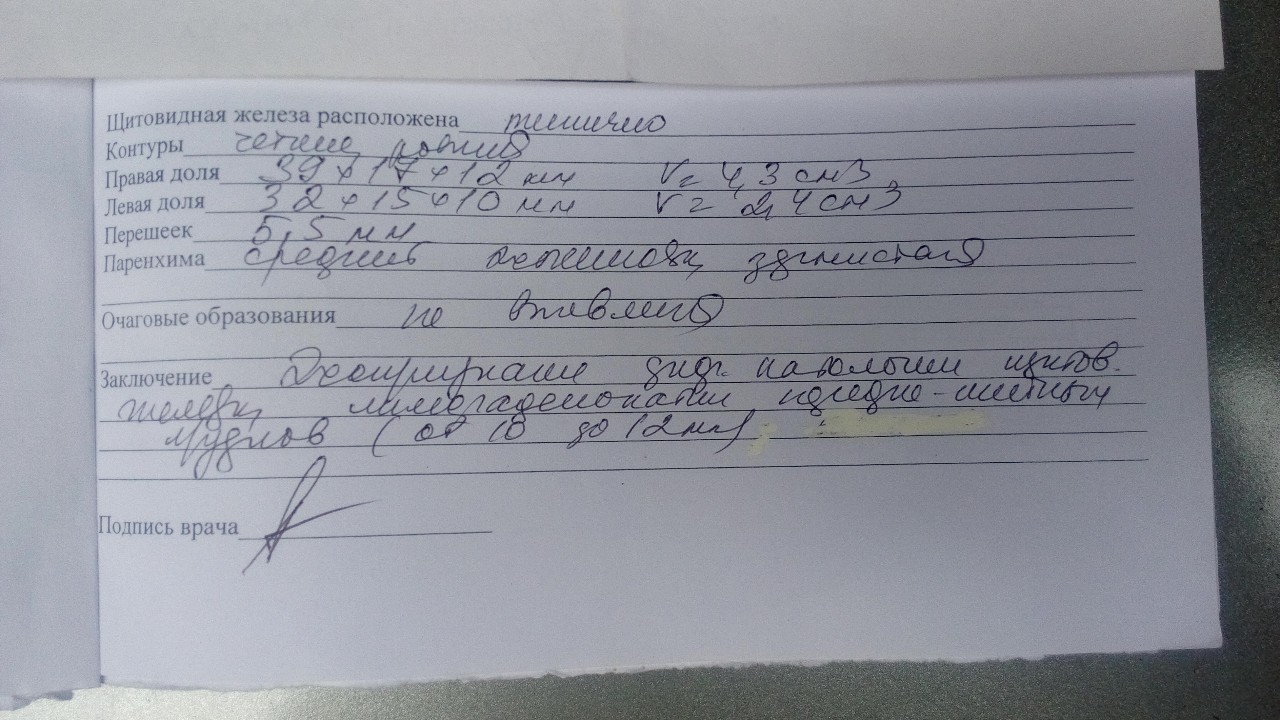 Щитовидная железа расположена типично
Контуры четкие ровные
Правая доля 39 х 17 х 12 мм V= 4,3 см3
Левая доля 32 х 15 х 10 мм V= 2,4 см3
Перешеек 5,5 мм
Паренхима средней эхогенности, зернистая
Очаговые образования не выявлено
Заключение Эхопризнаки патологии щитов.
железы, лимфаденопатии передне-шейных
узлов (от 10 до 12мм)
Подпись врача